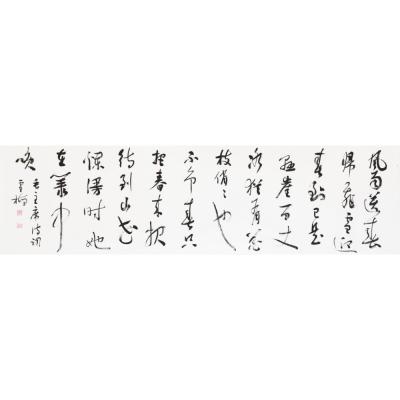 風雨送春
歸飛雪迎
春到已是
懸崖百丈
冰猶有花
枝俏俏也
不爭春只
把春來報
待到山花
爛漫時她
在叢中
笑
毛主席詩詞